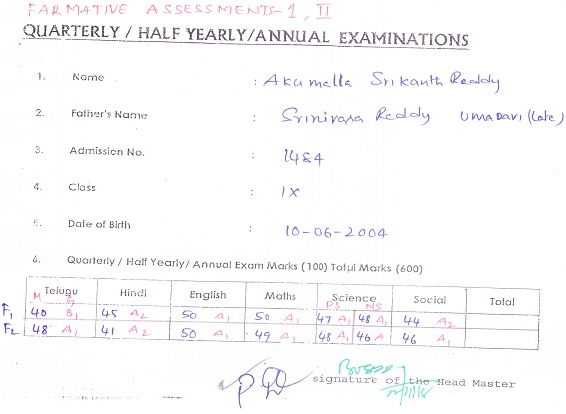 FARMATIVE ASSESSMENTS-1, II
QUARTERLY / HALF YEARLY/ANNUAL EXAMINATIONS
1. Name : Akumalla Srikanth Reddy
2. Father's Name : Srinivasa Reddy UmaDavi (Late)
3. Admission No. : 1484
4. Class : IX
5. Date of Birth : 10-06-2004
6. Quarterly / Half Yearly/ Annual Exam Marks (100) Total Marks (600)
Telugu Hindi English Maths Science Social Total
M G PS NS
F1 40 B1 45 A2 50 A1 50 A1 47 A1 48 A1 44 A2
F2 48 A1 41 A2 50 A1 49 A1 48 A1 46 A 46 A1
signature of the Head Master